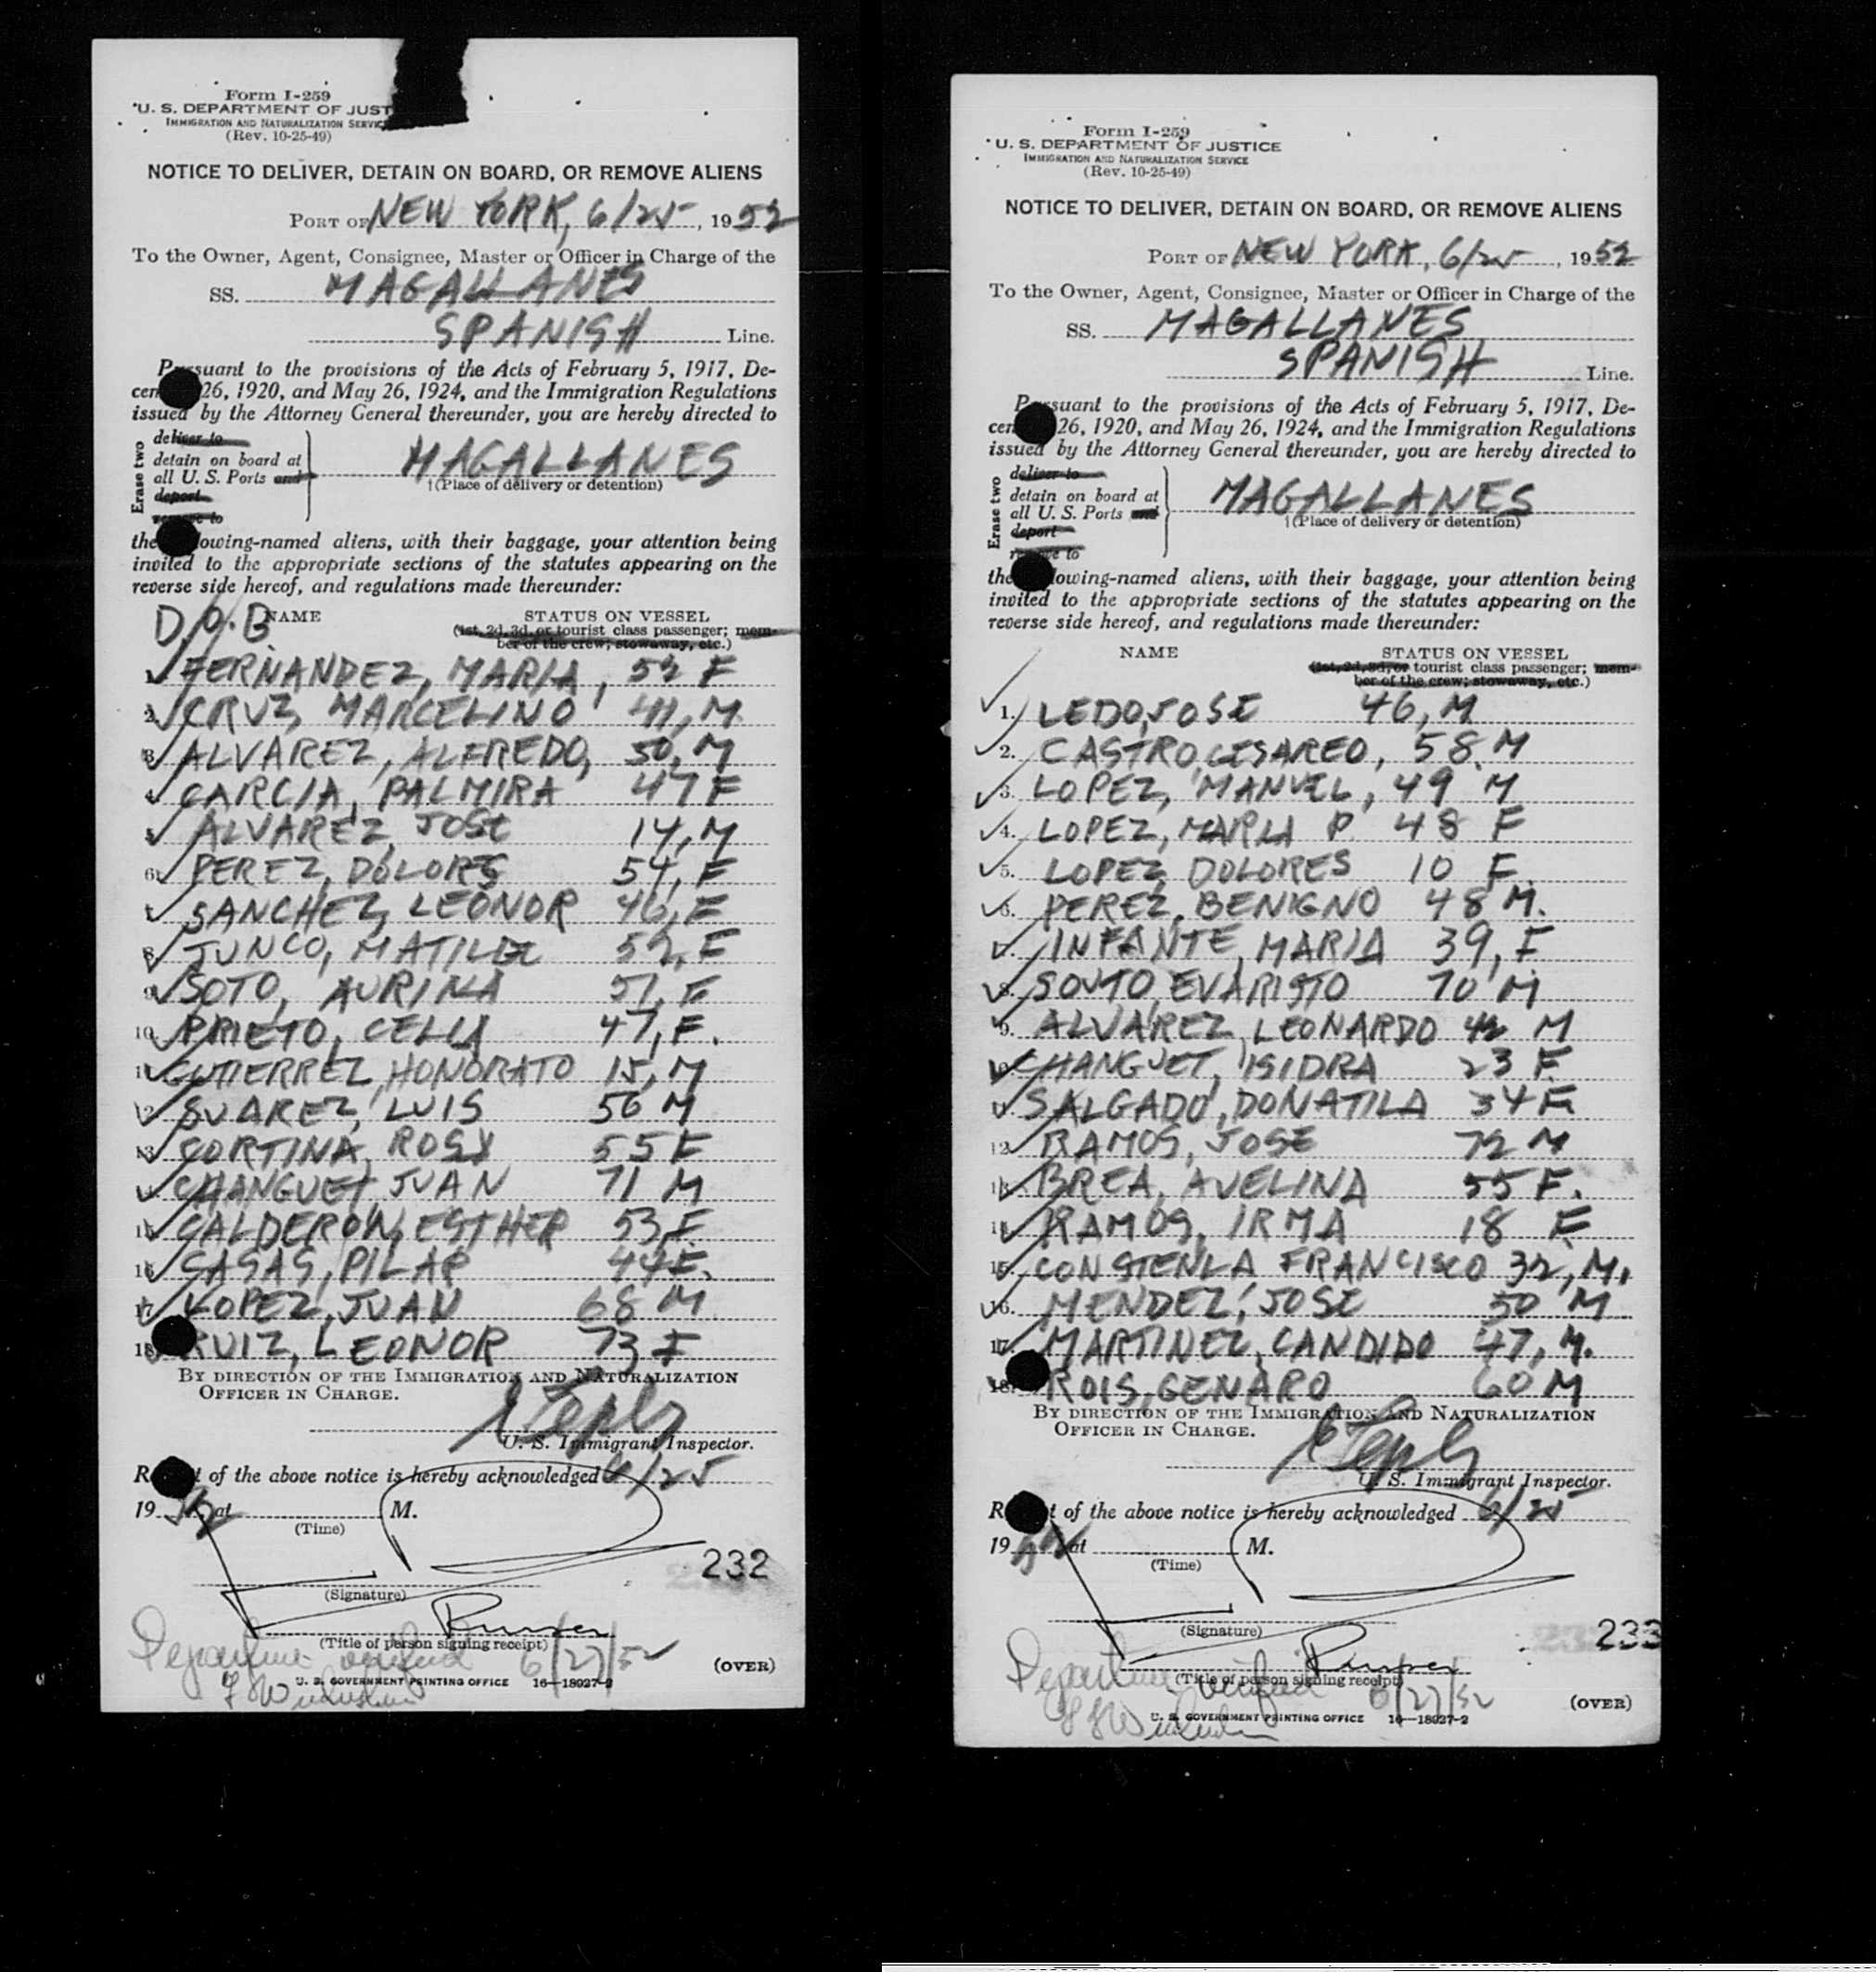 Form I-259
U. S. DEPARTMENT OF JUST
IMMIGRATION AND NATURALIZATION SERVIC
(Rev. 10-25-49)
NOTICE TO DELIVER, DETAIN ON BOARD, OR REMOVE ALIENS
PORT OF NEW YORK, 6/25, 1952
To the Owner, Agent, Consignee, Master or Officer in Charge of the
SS. MAGALLANES
SPANISH Line.
Pursuant to the provisions of the Acts of February 5, 1917, De-
cem 26, 1920, and May 26, 1924, and the Immigration Regulations
issued by the Attorney General thereunder, you are hereby directed to
Erase two
deliver to
detain on board at
all U. S. Ports and
deport
remove to
MAGALLANES
†(Place of delivery or detention)
the owing-named aliens, with their baggage, your attention being
invited to the appropriate sections of the statutes appearing on the
reverse side hereof, and regulations made thereunder:
D.O.B. NAME STATUS ON VESSEL
(1st, 2d, 3d, or tourist class passenger; mem-
ber of the crew; stowaway, etc.)
1. FERNANDEZ, MARIA, 52 F
2. CRUZ, MARCELINO 41, M
3. ALVAREZ, ALFREDO, 50, M
4. GARCIA, PALMIRA 47 F
5. ALVAREZ, JOSE 14, M
6. PEREZ, DOLORES 54, F
7. SANCHEZ, LEONOR 46, F
8. JUNCO, MATILDE 52, F
9. SOTO, AURINA 51, F
10. PRIETO, CELIA 47, F.
11. GUTIERREZ, HONORATO 15, M
12. SUAREZ, LUIS 56 M
13. CORTINA, ROSA 55 F
14. CHANGUET, JUAN 71 M
15. CALDERON, ESTHER 53 F.
16. CASAS, PILAR 44 F.
17. LOPEZ, JUAN 68 M
18. RUIZ, LEONOR 73 F
BY DIRECTION OF THE IMMIGRATION AND NATURALIZATION
OFFICER IN CHARGE.
U. S. Immigrant Inspector.
R t of the above notice is hereby acknowledged 6/25
1952 at M.
(Time)
232
(Signature)
Purser
(Title of person signing receipt)
Departure verified 6/27/52
(OVER)
U. S. GOVERNMENT PRINTING OFFICE 16—18027-2
Form I-259
U. S. DEPARTMENT OF JUSTICE
IMMIGRATION AND NATURALIZATION SERVICE
(Rev. 10-25-49)
NOTICE TO DELIVER, DETAIN ON BOARD, OR REMOVE ALIENS
PORT OF NEW YORK, 6/25, 1952
To the Owner, Agent, Consignee, Master or Officer in Charge of the
SS. MAGALLANES
SPANISH Line.
Pursuant to the provisions of the Acts of February 5, 1917, De-
cem 26, 1920, and May 26, 1924, and the Immigration Regulations
issued by the Attorney General thereunder, you are hereby directed to
Erase two
deliver to
detain on board at
all U. S. Ports and
deport
remove to
MAGALLANES
†(Place of delivery or detention)
the lowing-named aliens, with their baggage, your attention being
invited to the appropriate sections of the statutes appearing on the
reverse side hereof, and regulations made thereunder:
NAME STATUS ON VESSEL
(1st, 2d, 3d, or tourist class passenger; mem-
ber of the crew; stowaway, etc.)
1. LEDO, JOSE 46, M
2. CASTRO, CESAREO, 58 M
3. LOPEZ, MANUEL, 49 M
4. LOPEZ, MARIA P 48 F
5. LOPEZ, DOLORES 10 F.
6. PEREZ, BENIGNO 48 M.
7. INFANTE, MARIA 39, F
8. SOUTO, EVARISTO 70 M
9. ALVAREZ, LEONARDO 42 M
10. CHANGUET, ISIDRA 23 F
11. SALGADO, DONATILA 34 F
12. RAMOS, JOSE 72 M
13. BREA, AVELINA 55 F.
14. RAMOS, IRMA 18 F
15. CONSTENLA FRANCISCO 32, M.
16. MENDEZ, JOSE 50 M
17. MARTINEZ, CANDIDO 47, M.
18. ROIS, GENARO 60 M
BY DIRECTION OF THE IMMIGRATION AND NATURALIZATION
OFFICER IN CHARGE.
U. S. Immigrant Inspector.
R t of the above notice is hereby acknowledged 6/25
1952 at M.
(Time)
(Signature)
233
Purser
(Title of person signing receipt)
Departure verified 6/27/52
(OVER)
U. S. GOVERNMENT PRINTING OFFICE 16—18027-2